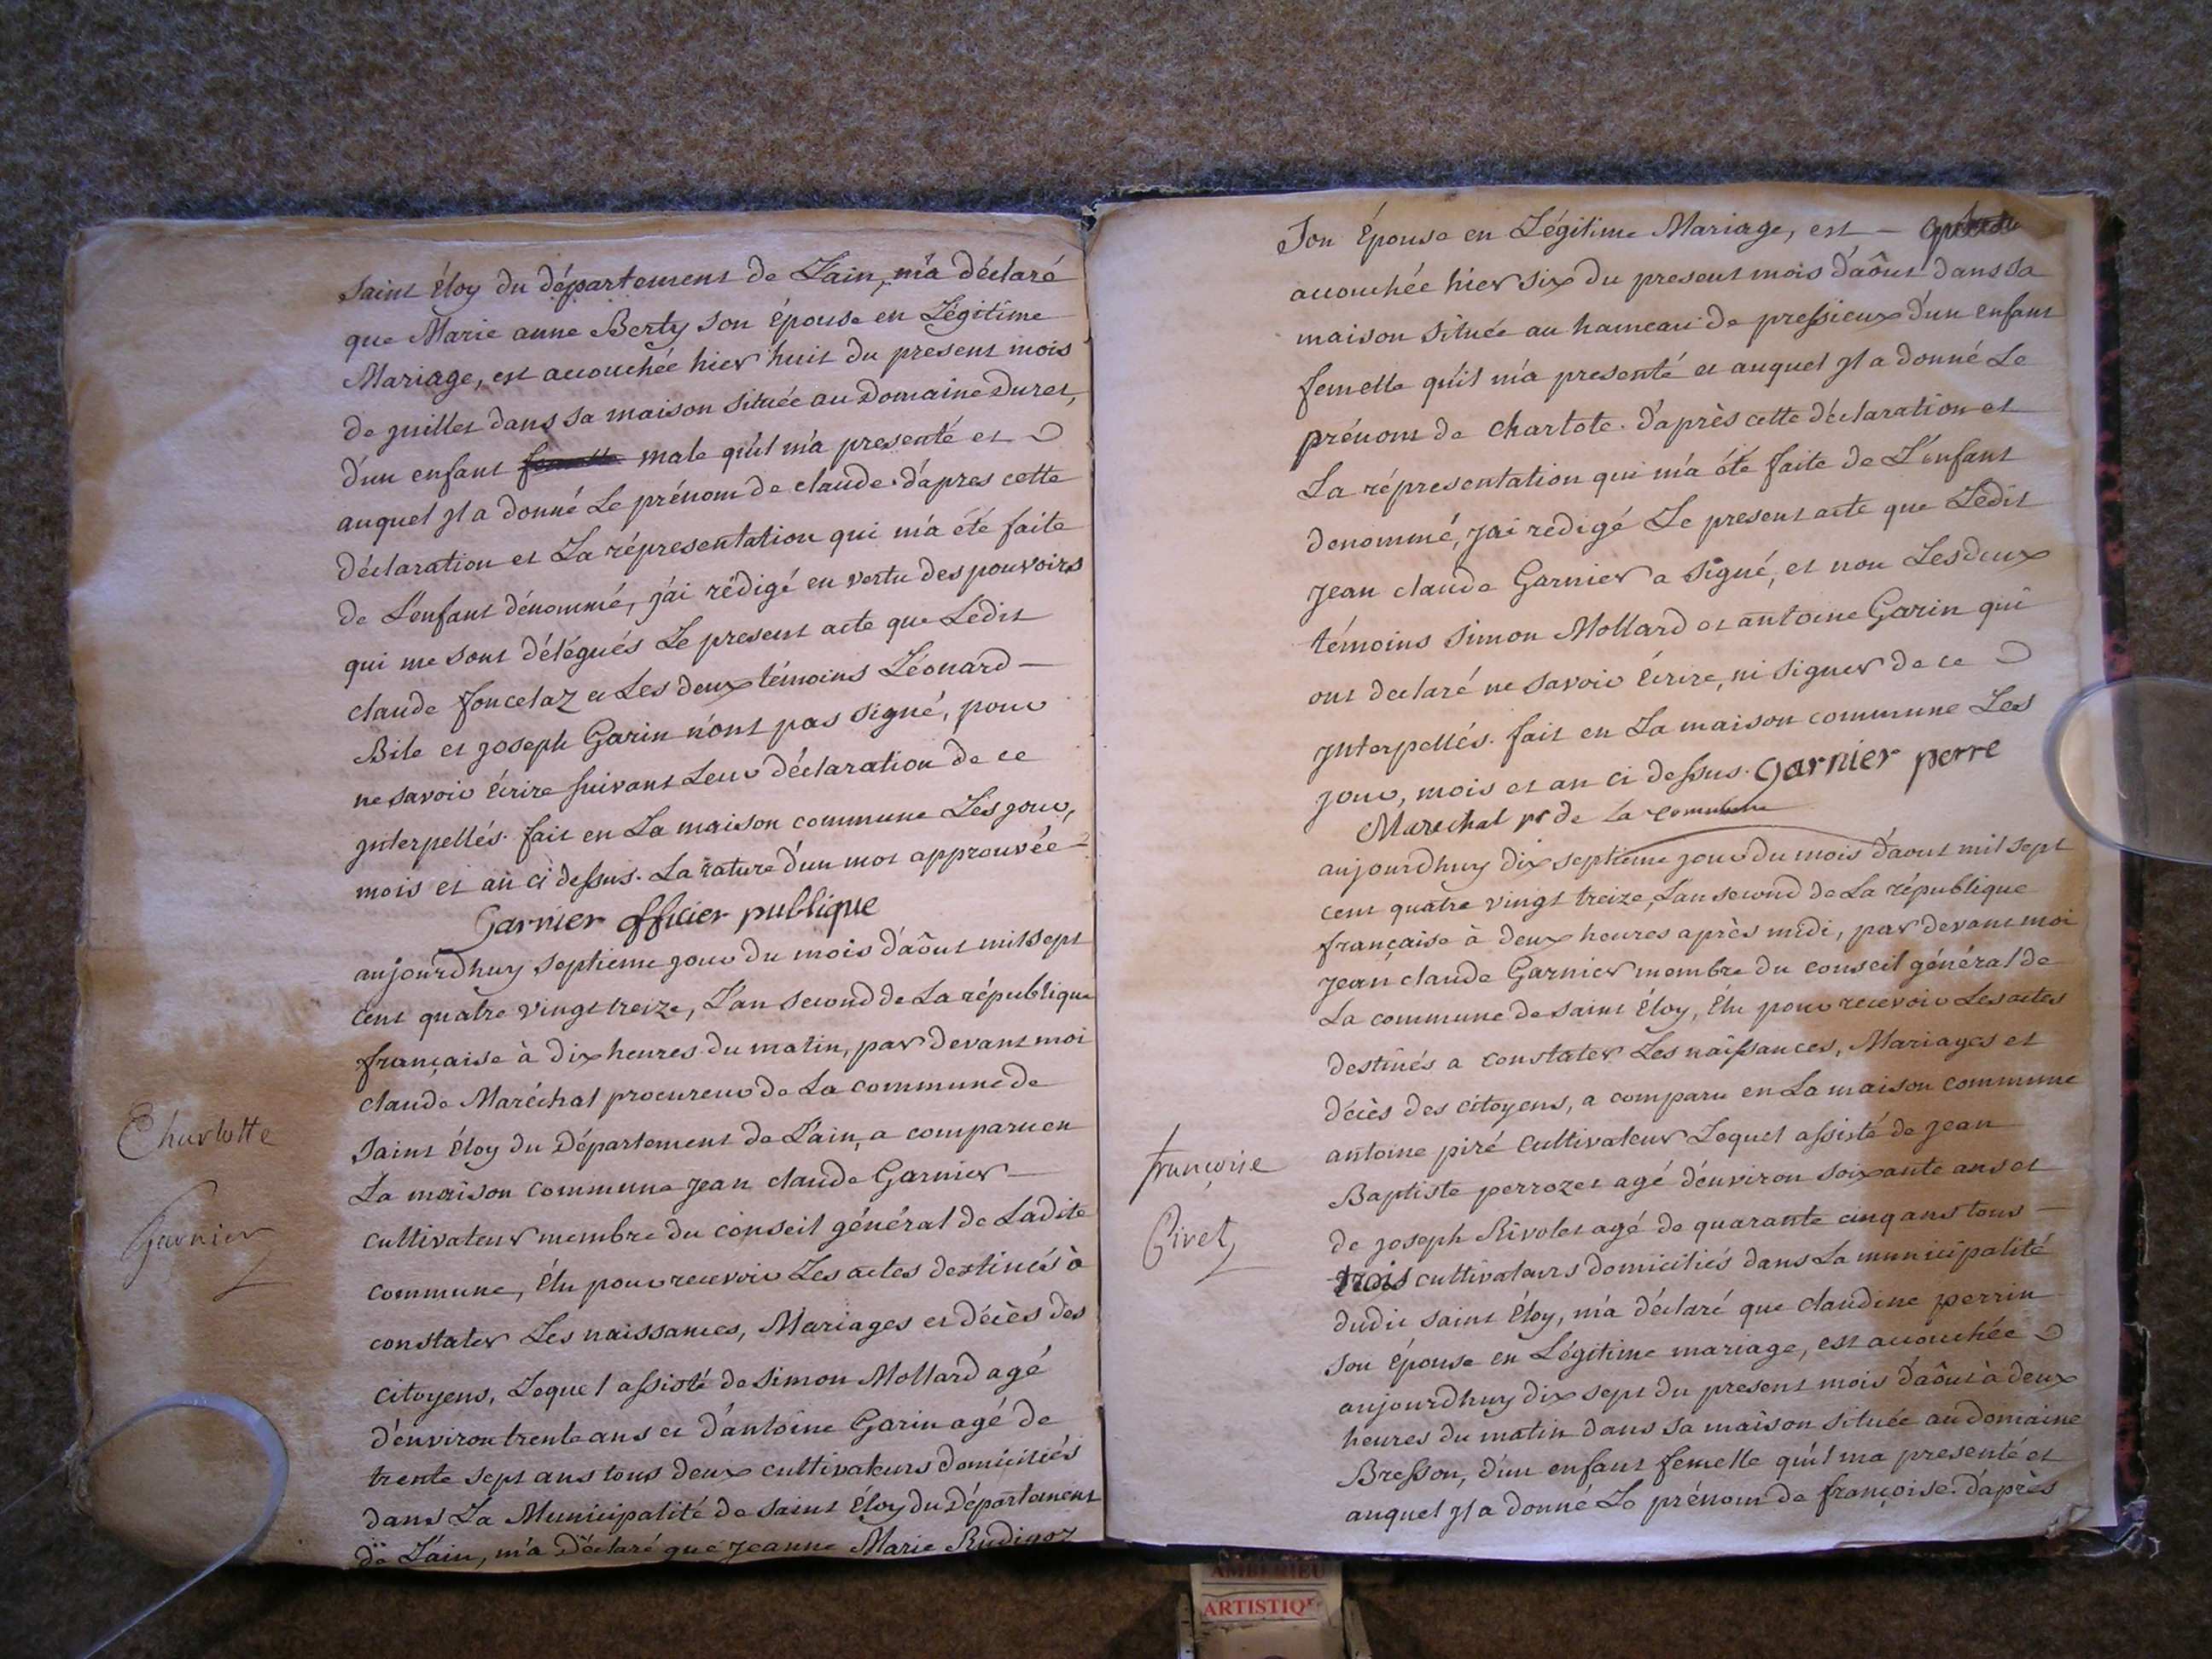 saint Éloy du département de L'ain, m'a déclaré
que Marie anne Berty son épouse en Légitime
Mariage, est accouchée hier huit du present mois
de juillet dans sa maison située au Domaine Duret,
d'un enfant male qu'il m'a presenté et
auquel jl a donné Le prénom de claude. d'apres cette
déclaration et La répresentation qui m'a été faite
de L'enfant dénommé, j'ai rédigé en vertu des pouvoirs
qui me sont délégués Le present acte que Ledit
claude foncelaz et Les deux témoins Léonard
Bile et joseph Garin n'ont pas signé, pour
ne savoir écrire suivant Leur déclaration de ce
jnterpellés. fait en La maison commune Les jour,
mois et an ci dessus. La rature d'un mot approuvée
Garnier officier publique
aujourdhuy septieme jour du mois d'aôut mil sept
cent quatre vingt treize, L'an second de La république
française à dix heures du matin, par devant moi
claude Maréchal procureur de La commune de
Saint Éloy du Département de L'ain, a comparu en
La maison commune jean claude Garnier
cultivateur membre du conseil général de Ladite
commune, élu pour recevoir Les actes destinés à
constater Les naissances, Mariages et décès des
citoyens, Lequel assisté de simon Mollard agé
d'environ trente ans et d'antoine Garin agé de
trente sept ans tous deux cultivateurs domiciliés
dans La Municipalité de saint Éloy du Département
de L'ain, m'a Déclaré que jeanne Marie Rudigoz
Charlotte
Garnier
Son épouse en Légitime Mariage, est
accouchée hier six du present mois d'aôut dans sa
maison située au hameau de pressieux d'un enfant
femelle qu'il m'a presenté et auquel jl a donné Le
prénom de chartote. d'après cette déclaration et
La répresentation qui m'a été faite de L'enfant
denommé, j'ai rédigé Le present acte que Ledit
jean claude Garnier a signé, et non Les deux
témoins simon Mollard et antoine Garin qui
ont declaré ne savoir écrire, ni signer de ce
jnterpellés. fait en La maison commune Les
jour, mois et an ci dessus. Garnier perre
Marechal pr de la commune
aujourdhuy dix septieme jour du mois d'aout mil sept
cent quatre vingt treize, L'an second de La république
française à deux heures après midi, par devant moi
jean claude Garnier membre du conseil général de
La commune de saint Éloy, élu pour recevoir Les actes
destinés a constater Les naissances, Mariages et
décès des citoyens, a comparu en La maison commune
antoine piré cultivateur Lequel assisté de jean
Baptiste perrozet agé d'environ soixante ans et
de joseph Rivolet agé de quarante cinq ans tous
trois cultivateurs domiciliés dans La municipalité
dudit saint Éloy, m'a déclaré que claudine perrin
son épouse en Légitime mariage, est accouchée
aujourdhuy dix sept du present mois d'aôut à deux
heures du matin dans sa maison située au domaine
Bresson, d'un enfant femelle qu'il ma presenté et
auquel jl a donné Le prénom de françoise. d'après
françoise
Piret
AMBERIEU
ARTISTIQUE